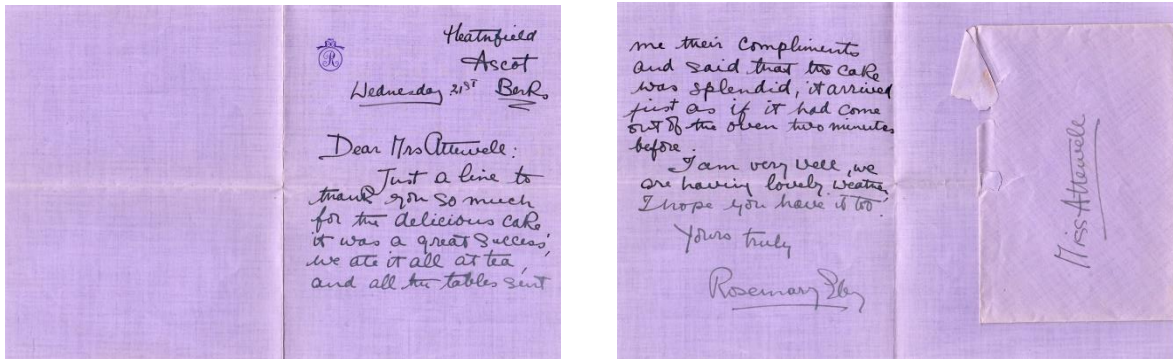 R
Heathfield
Ascot
Wednesday 21ST Berks
Dear Mrs Attewell:
Just a line to
thank you so much
for the delicious cake
it was a great success,
we ate it all at tea,
and all the tables sent
me their compliments
and said that the cake
was splendid, it arrived
just as if it had come
out of the oven two minutes
before.
I am very well, we
are having lovely weather
I hope you have it too.
Yours truly
Rosemary
Miss Attewell